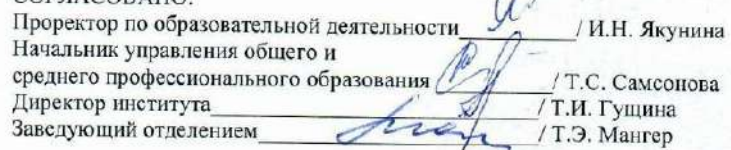 СОГЛАСОВАНО:
Проректор по образовательной деятельности / И.Н. Якунина
Начальник управления общего и
среднего профессионального образования / Т.С. Самсонова
Директор института / Т.И. Гущина
Заведующий отделением / Т.Э. Мангер